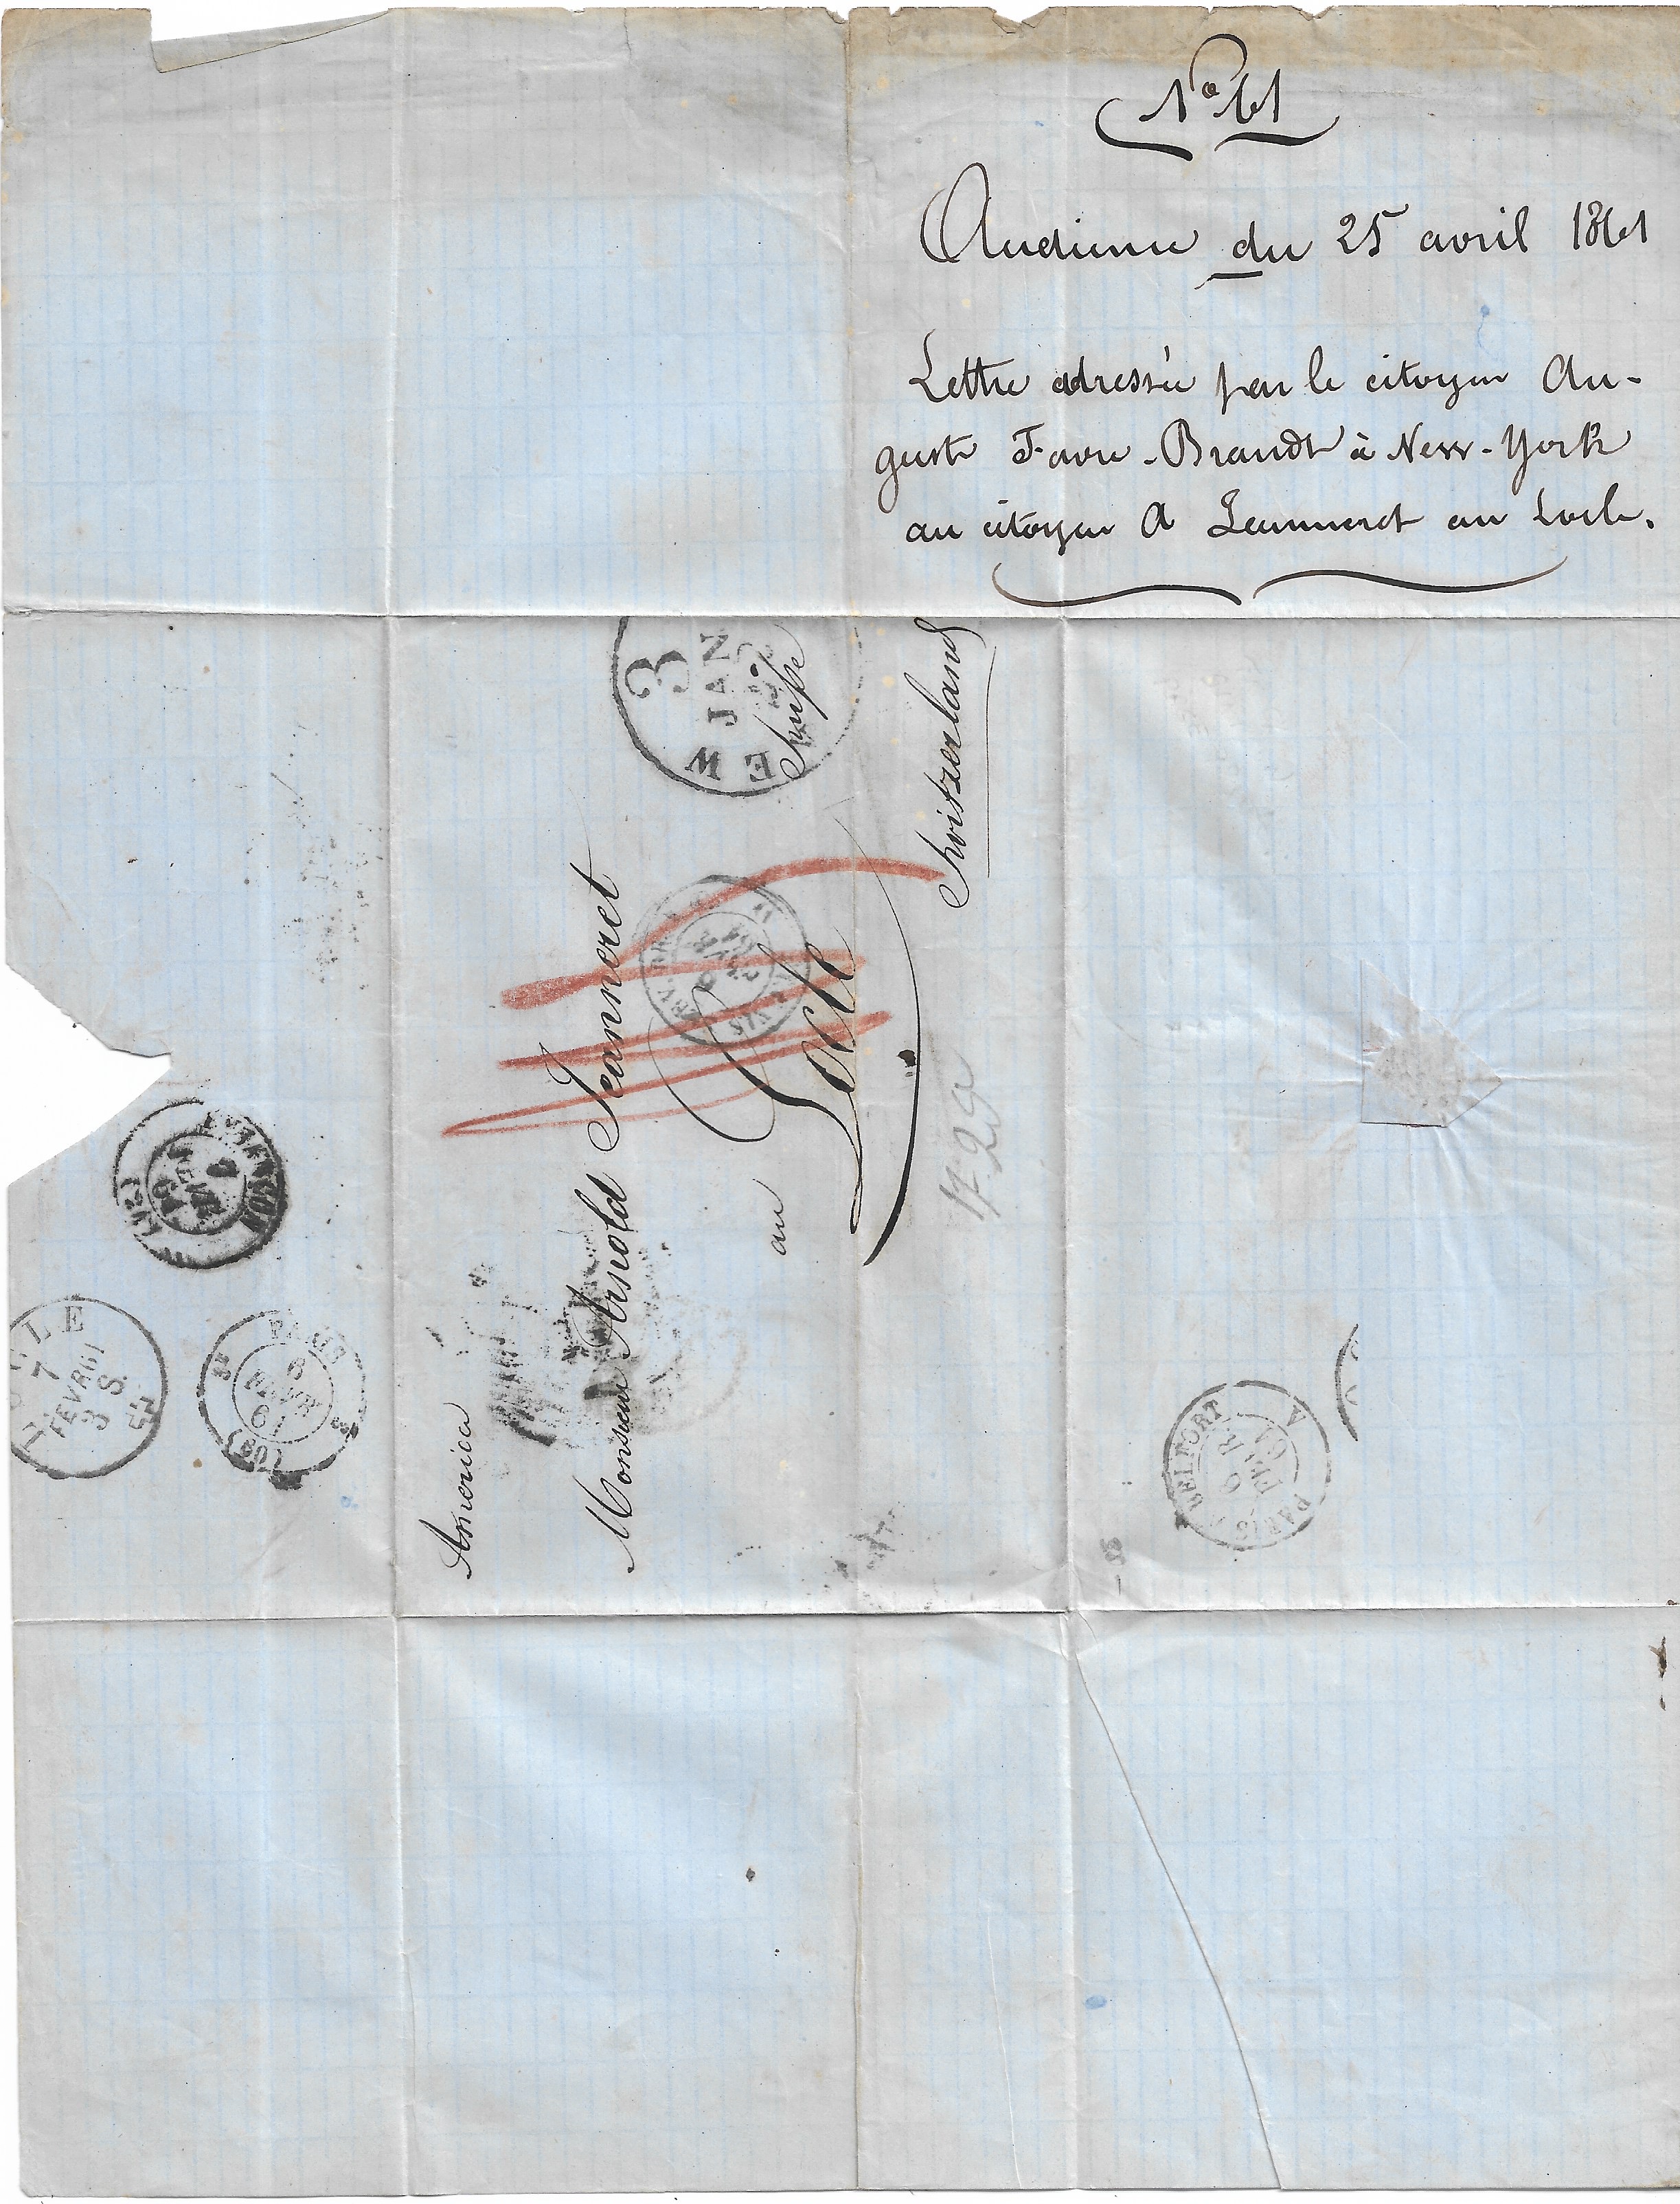 No 61
Audience du 25 avril 1861
Lettre adressée par le citoyen Au-
guste Favre-Brandt à New-York
au citoyen A Jeanneret au Locle.
America
Monsieur Arnold Jeanneret
au
Locle
Suisse
Switzerland
17-29
EW
3
JAN
BESANÇON
7
FEVR
61
(24)
LOCLE
7
FEVR 61
3 S.
PARIS
6
FEVR
61
(60)
PARIS
BELFORT
6
FEVR
61